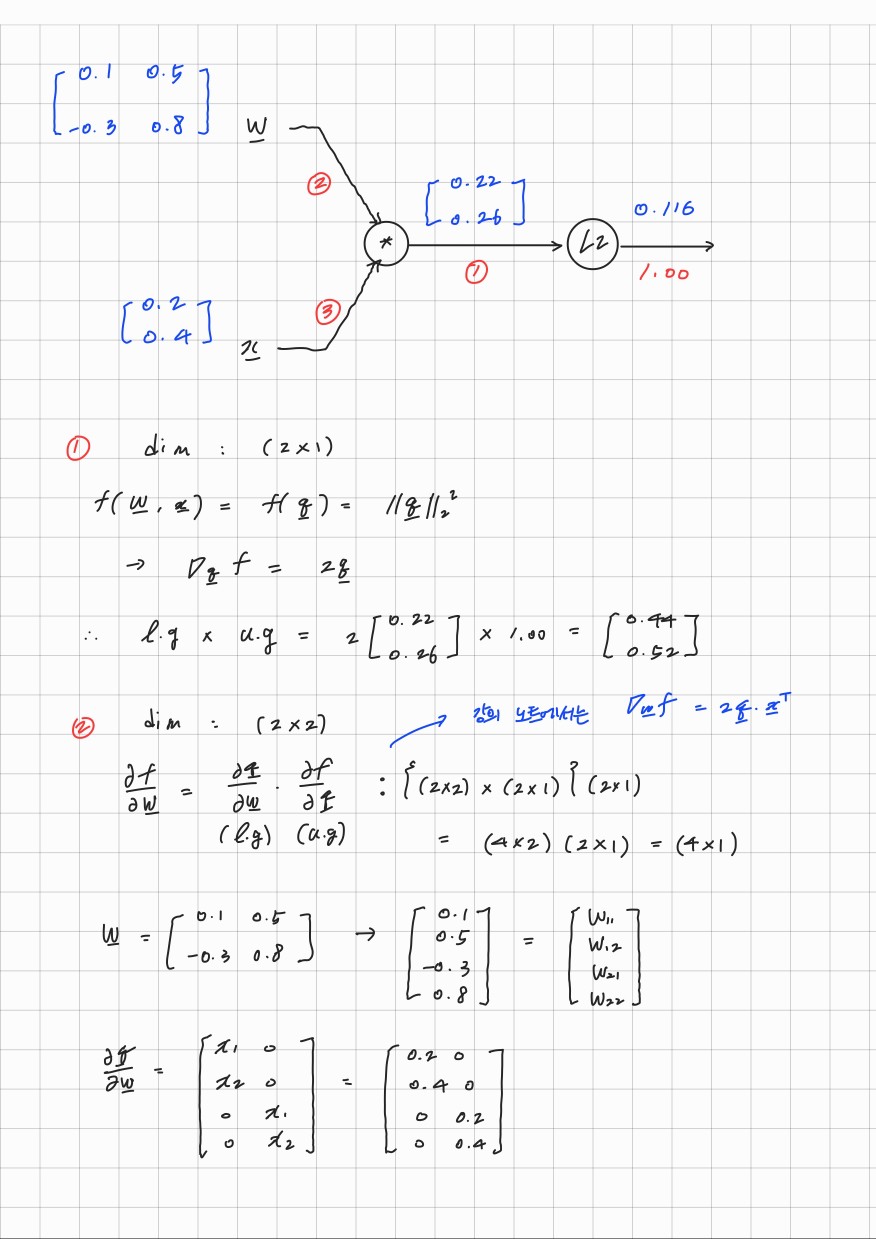 [ 0.1 0.5
-0.3 0.8 ]
W
②
[ 0.22
0.26 ]
0.116
*
L2
①
1.00
[ 0.2
0.4 ]
③
x
① dim : (2×1)
f(W, x) = f(q) = ||q||₂²
→ ∇q f = 2q
∴ l.g × u.g = 2 [ 0.22 0.26 ] × 1.00 = [ 0.44 0.52 ]
② dim : (2×2)
강의 노트에서는 ∇w f = 2q · xᵀ
∂f/∂W = ∂q/∂W · ∂f/∂q : {(2×2) × (2×1)} (2×1)
(l.g) (u.g) = (4×2) (2×1) = (4×1)
W = [ 0.1 0.5 -0.3 0.8 ] → [ 0.1 0.5 -0.3 0.8 ] = [ W₁₁ W₁₂ W₂₁ W₂₂ ]
∂q/∂W = [ x₁ 0 x₂ 0 0 x₁ 0 x₂ ] = [ 0.2 0 0.4 0 0 0.2 0 0.4 ]